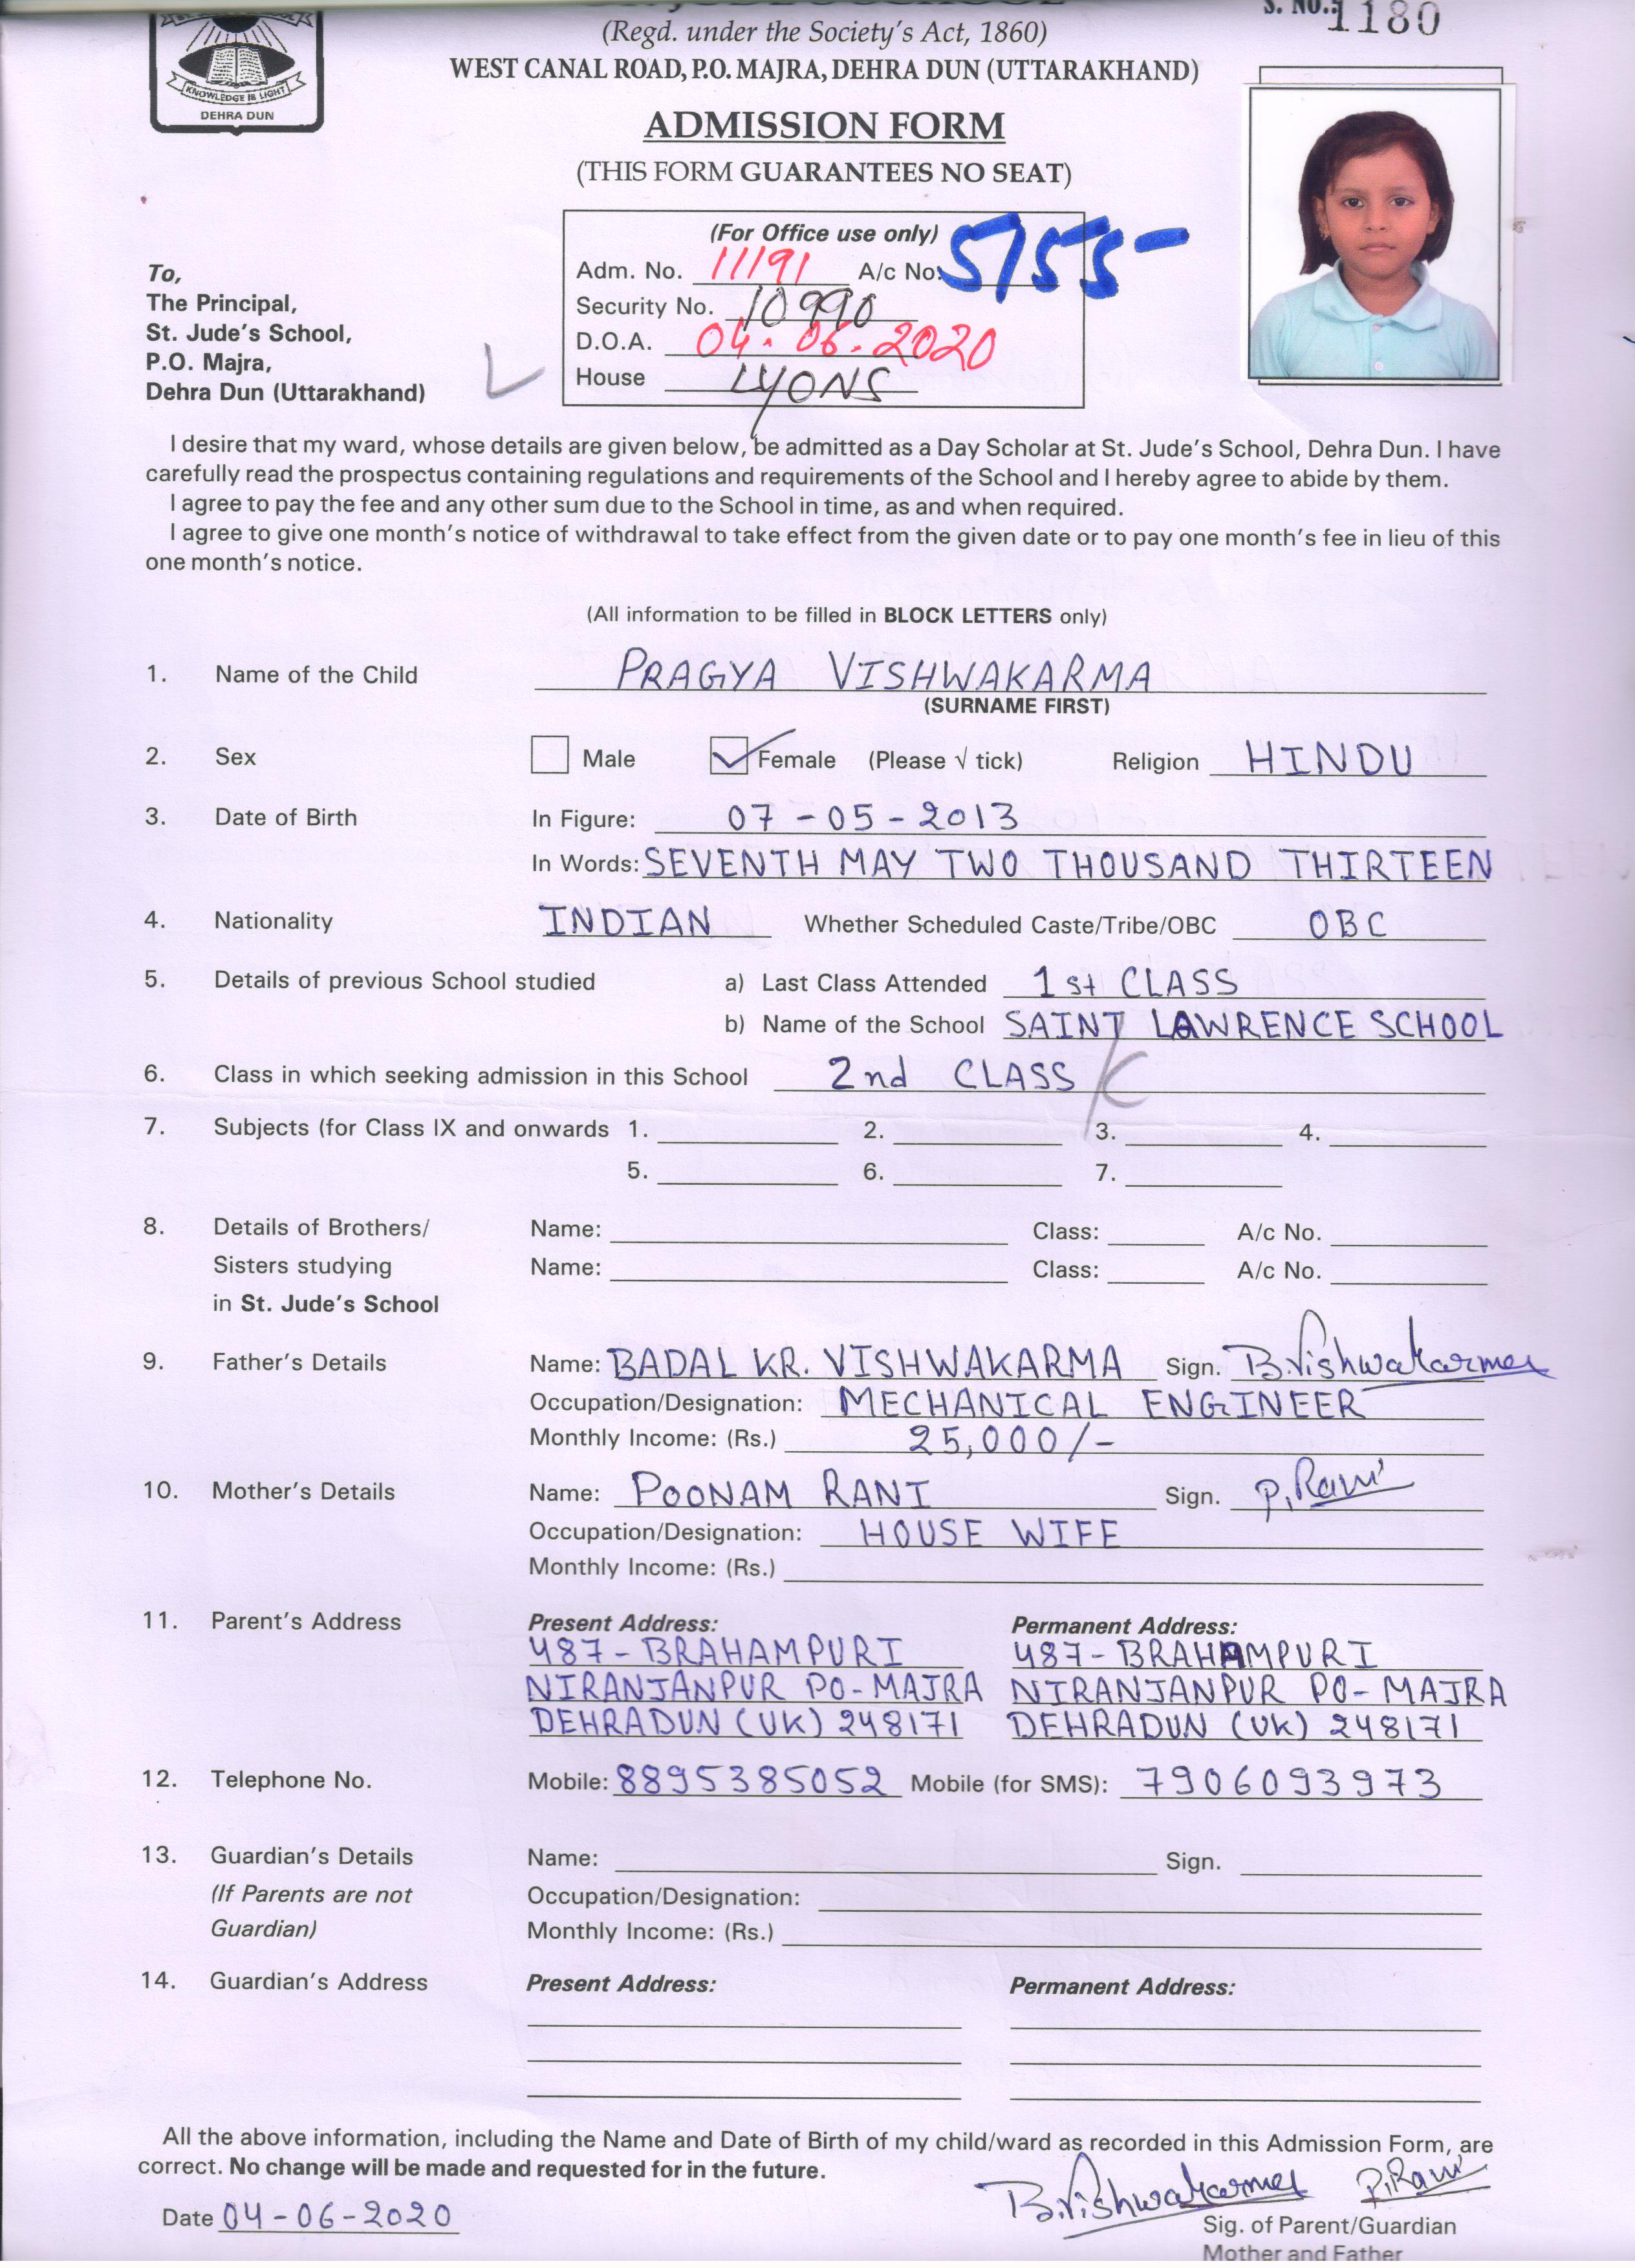 S. No.: 1180
(Regd. under the Society's Act, 1860)
WEST CANAL ROAD, P.O. MAJRA, DEHRA DUN (UTTARAKHAND)
KNOWLEDGE IS LIGHT
DEHRA DUN
ADMISSION FORM
(THIS FORM GUARANTEES NO SEAT)
(For Office use only)
Adm. No. 11191 A/c No: 5155-
Security No. 10990
D.O.A. 04.06.2020
House LYONS
To,
The Principal,
St. Jude's School,
P.O. Majra,
Dehra Dun (Uttarakhand)
I desire that my ward, whose details are given below, be admitted as a Day Scholar at St. Jude's School, Dehra Dun. I have
carefully read the prospectus containing regulations and requirements of the School and I hereby agree to abide by them.
I agree to pay the fee and any other sum due to the School in time, as and when required.
I agree to give one month's notice of withdrawal to take effect from the given date or to pay one month's fee in lieu of this
one month's notice.
(All information to be filled in BLOCK LETTERS only)
1. Name of the Child PRAGYA VISHWAKARMA
(SURNAME FIRST)
2. Sex Male Female (Please √ tick) Religion HINDU
3. Date of Birth In Figure: 07-05-2013
In Words: SEVENTH MAY TWO THOUSAND THIRTEEN
4. Nationality INDIAN Whether Scheduled Caste/Tribe/OBC OBC
5. Details of previous School studied a) Last Class Attended 1st CLASS
b) Name of the School SAINT LAWRENCE SCHOOL
6. Class in which seeking admission in this School 2nd CLASS
7. Subjects (for Class IX and onwards 1. 2. 3. 4.
5. 6. 7.
8. Details of Brothers/ Name: Class: A/c No.
Sisters studying Name: Class: A/c No.
in St. Jude's School
9. Father's Details Name: BADAL KR. VISHWAKARMA Sign. B.Vishwakarma
Occupation/Designation: MECHANICAL ENGINEER
Monthly Income: (Rs.) 25,000/-
10. Mother's Details Name: POONAM RANI Sign. P.Rani
Occupation/Designation: HOUSE WIFE
Monthly Income: (Rs.)
11. Parent's Address Present Address: Permanent Address:
487-BRAHAMPURI 487-BRAHAMPURI
NIRANJANPUR PO-MAJRA NIRANJANPUR PO-MAJRA
DEHRADUN (UK) 248171 DEHRADUN (UK) 248171
12. Telephone No. Mobile: 8895385052 Mobile (for SMS): 7906093973
13. Guardian's Details Name: Sign.
(If Parents are not Occupation/Designation:
Guardian) Monthly Income: (Rs.)
14. Guardian's Address Present Address: Permanent Address:
All the above information, including the Name and Date of Birth of my child/ward as recorded in this Admission Form, are
correct. No change will be made and requested for in the future.
B.Vishwakarma P.Rani
Date 04-06-2020
Sig. of Parent/Guardian
Mother and Father